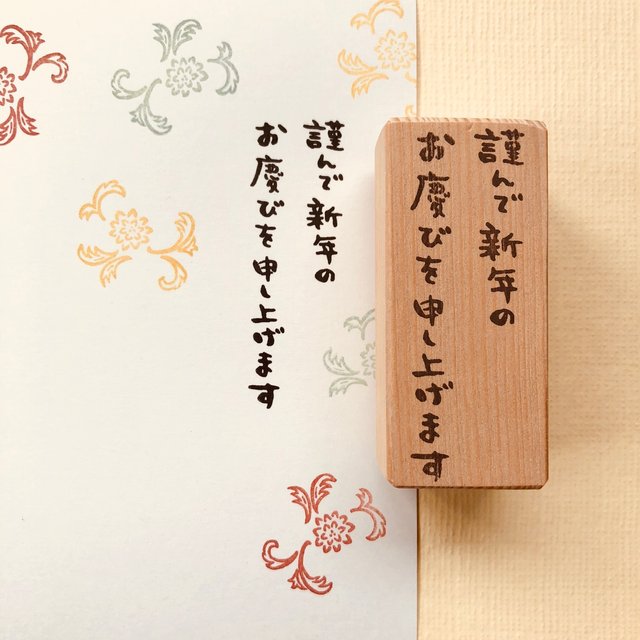 謹んで新年の
お慶びを申し上げます
謹んで新年の
お慶びを申し上げます